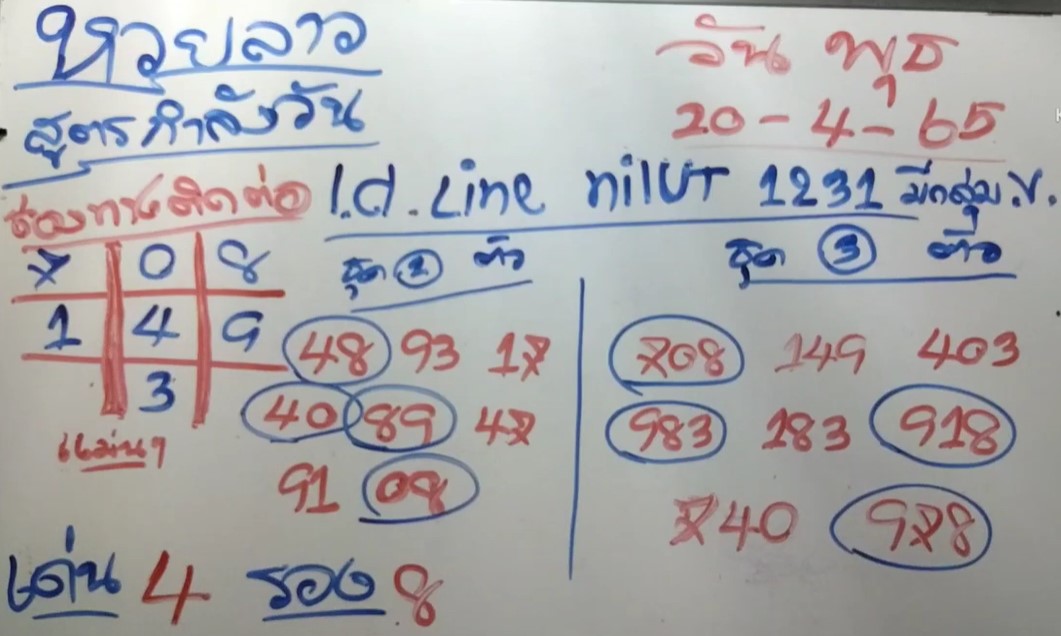 หวยลาว
สูตรกำลังวัน
วัน พุธ
20-4-65
ช่องทางติดต่อ I.d. Line nilUT 1231 มีกลุ่ม.V.
7 0 8
1 4 9
3
แม่นๆ
ชุด 2 ตัว
48 93 17
40 89 47
91 08
ชุด 3 ตัว
708 149 403
983 183 918
740 978
เด่น 4 รอง 8